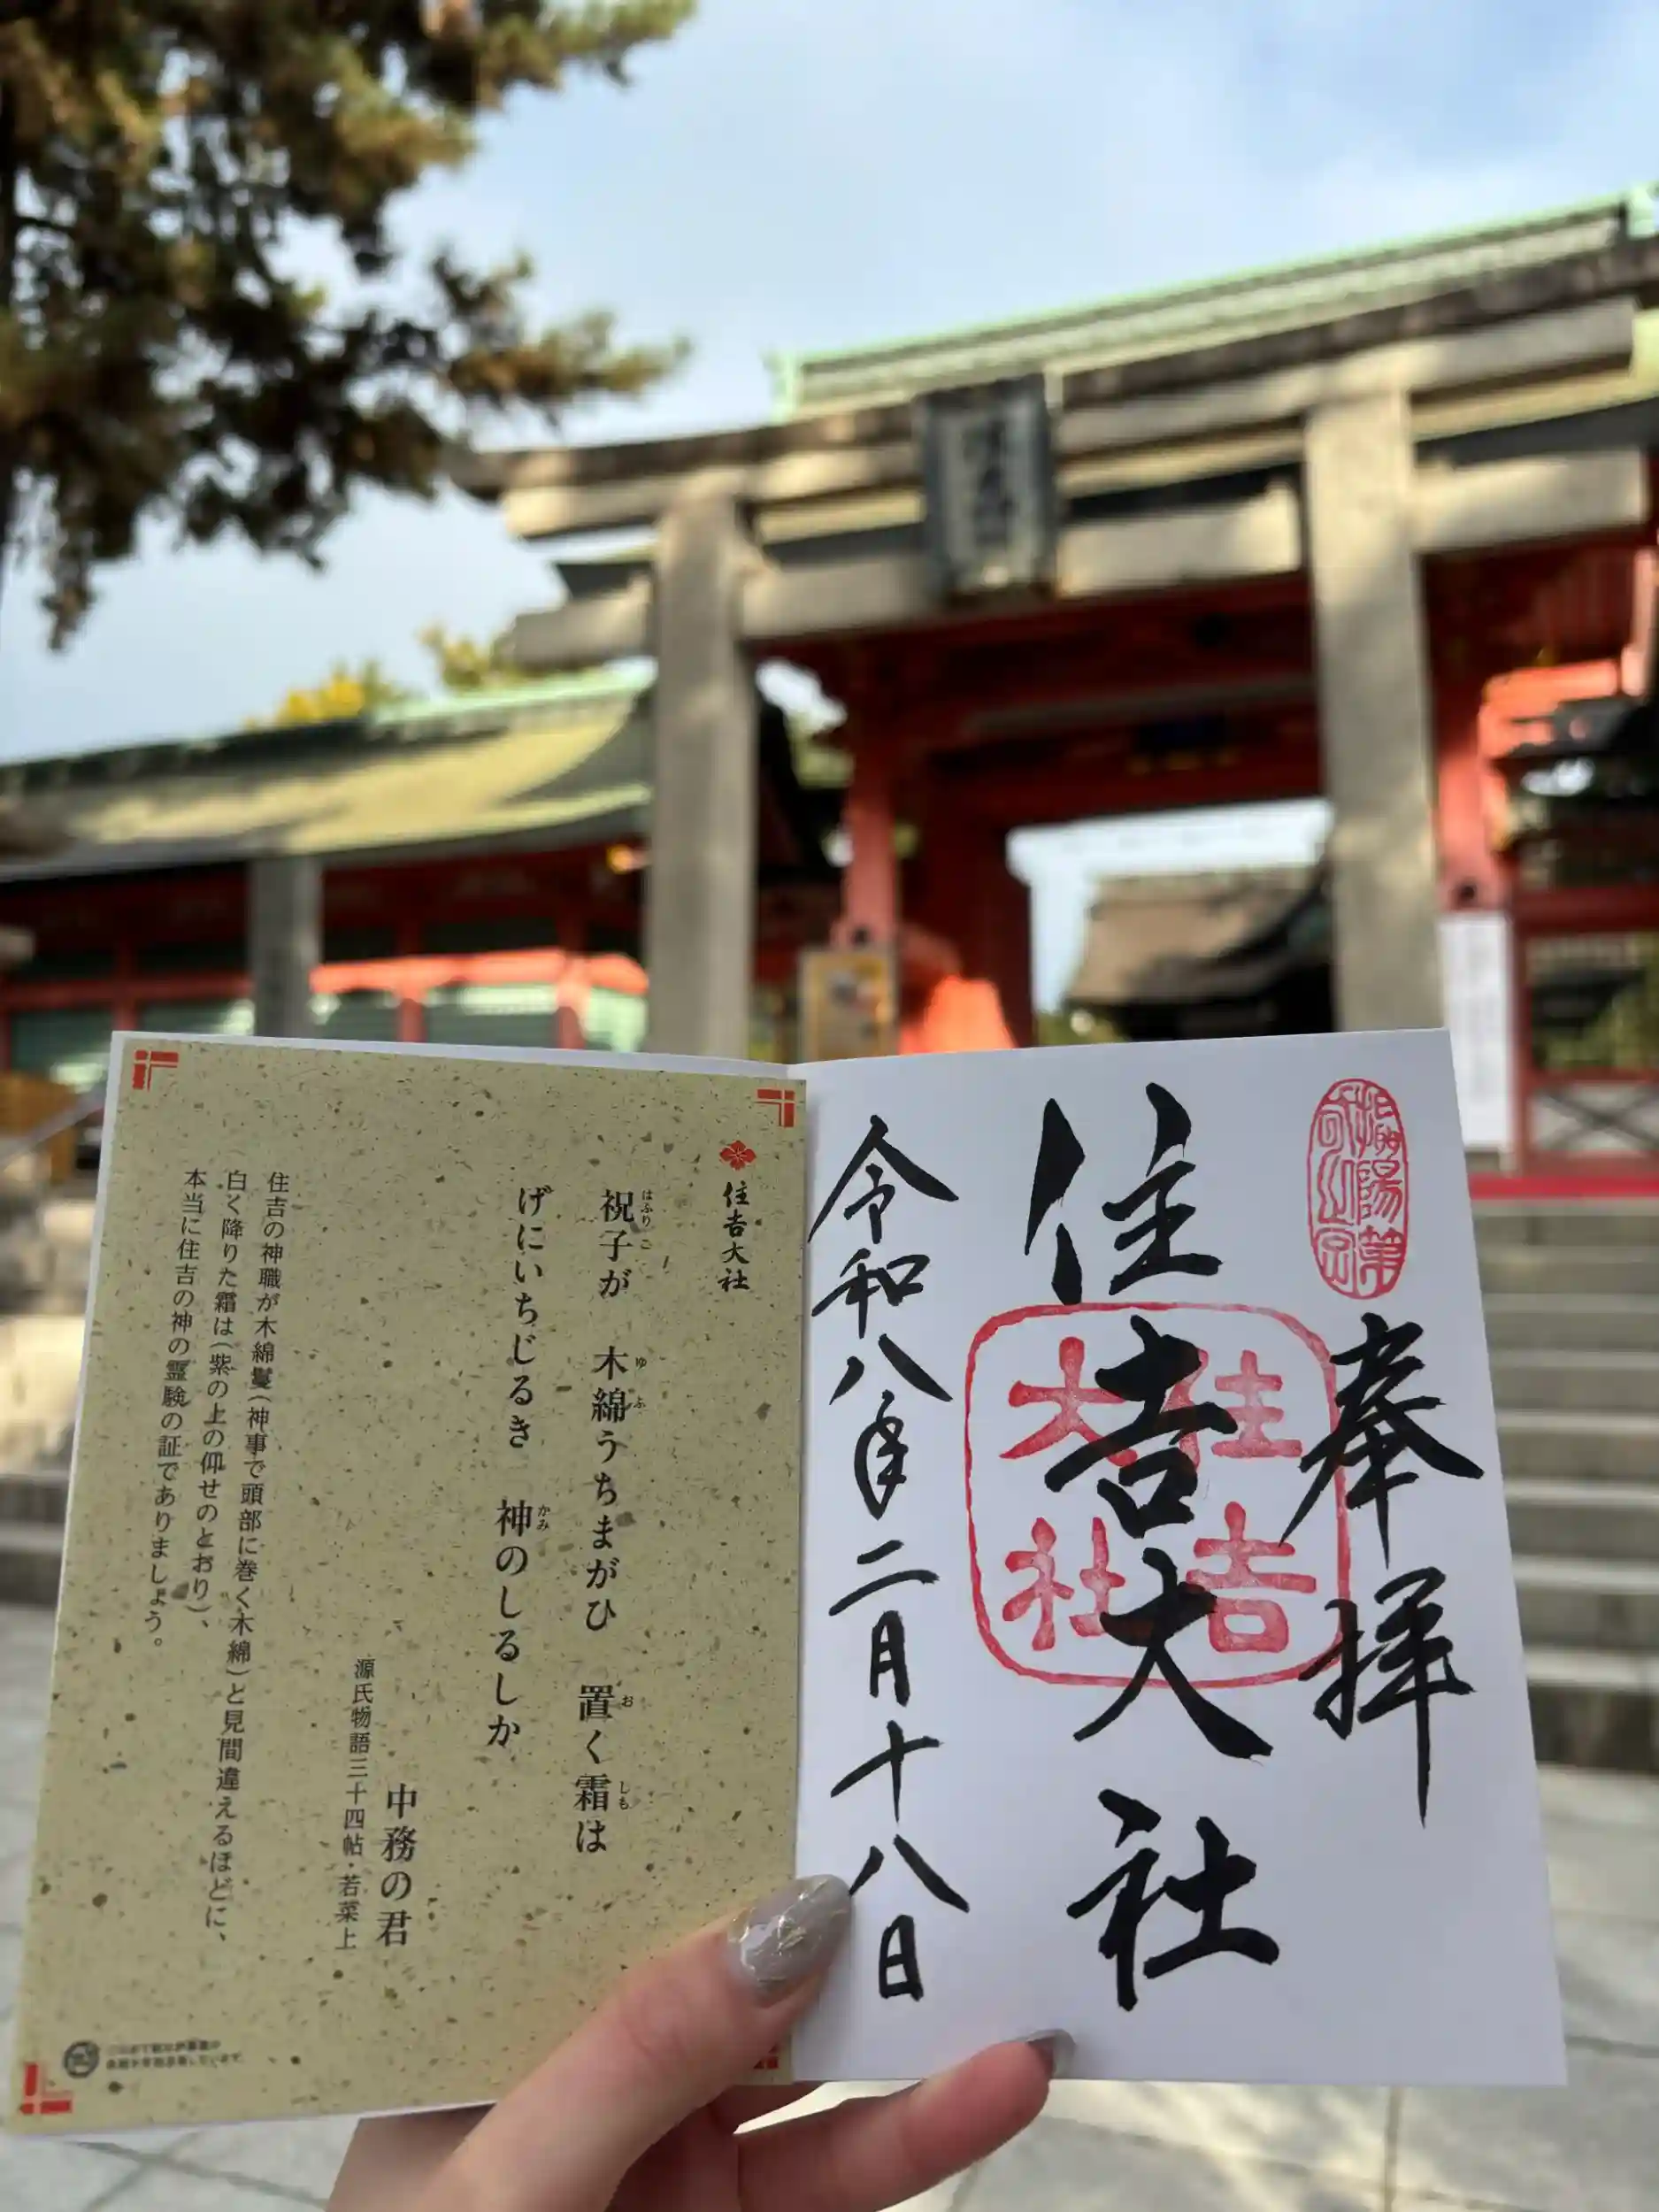 奉拝
住吉大社
住吉
大社
令和八年二月十八日
住吉大社
祝子が 木綿うちまがひ 置く霜は
はふりこ ゆふ お しも
げにいちじるき 神のしるしか
かみ
中務の君
源氏物語三十四帖・若菜上
住吉の神職が木綿鬘(神事で頭部に巻く木綿)と見間違えるほどに、
白く降りた霜は(紫の上の仰せのとおり)、
本当に住吉の神の霊験の証でありましょう。